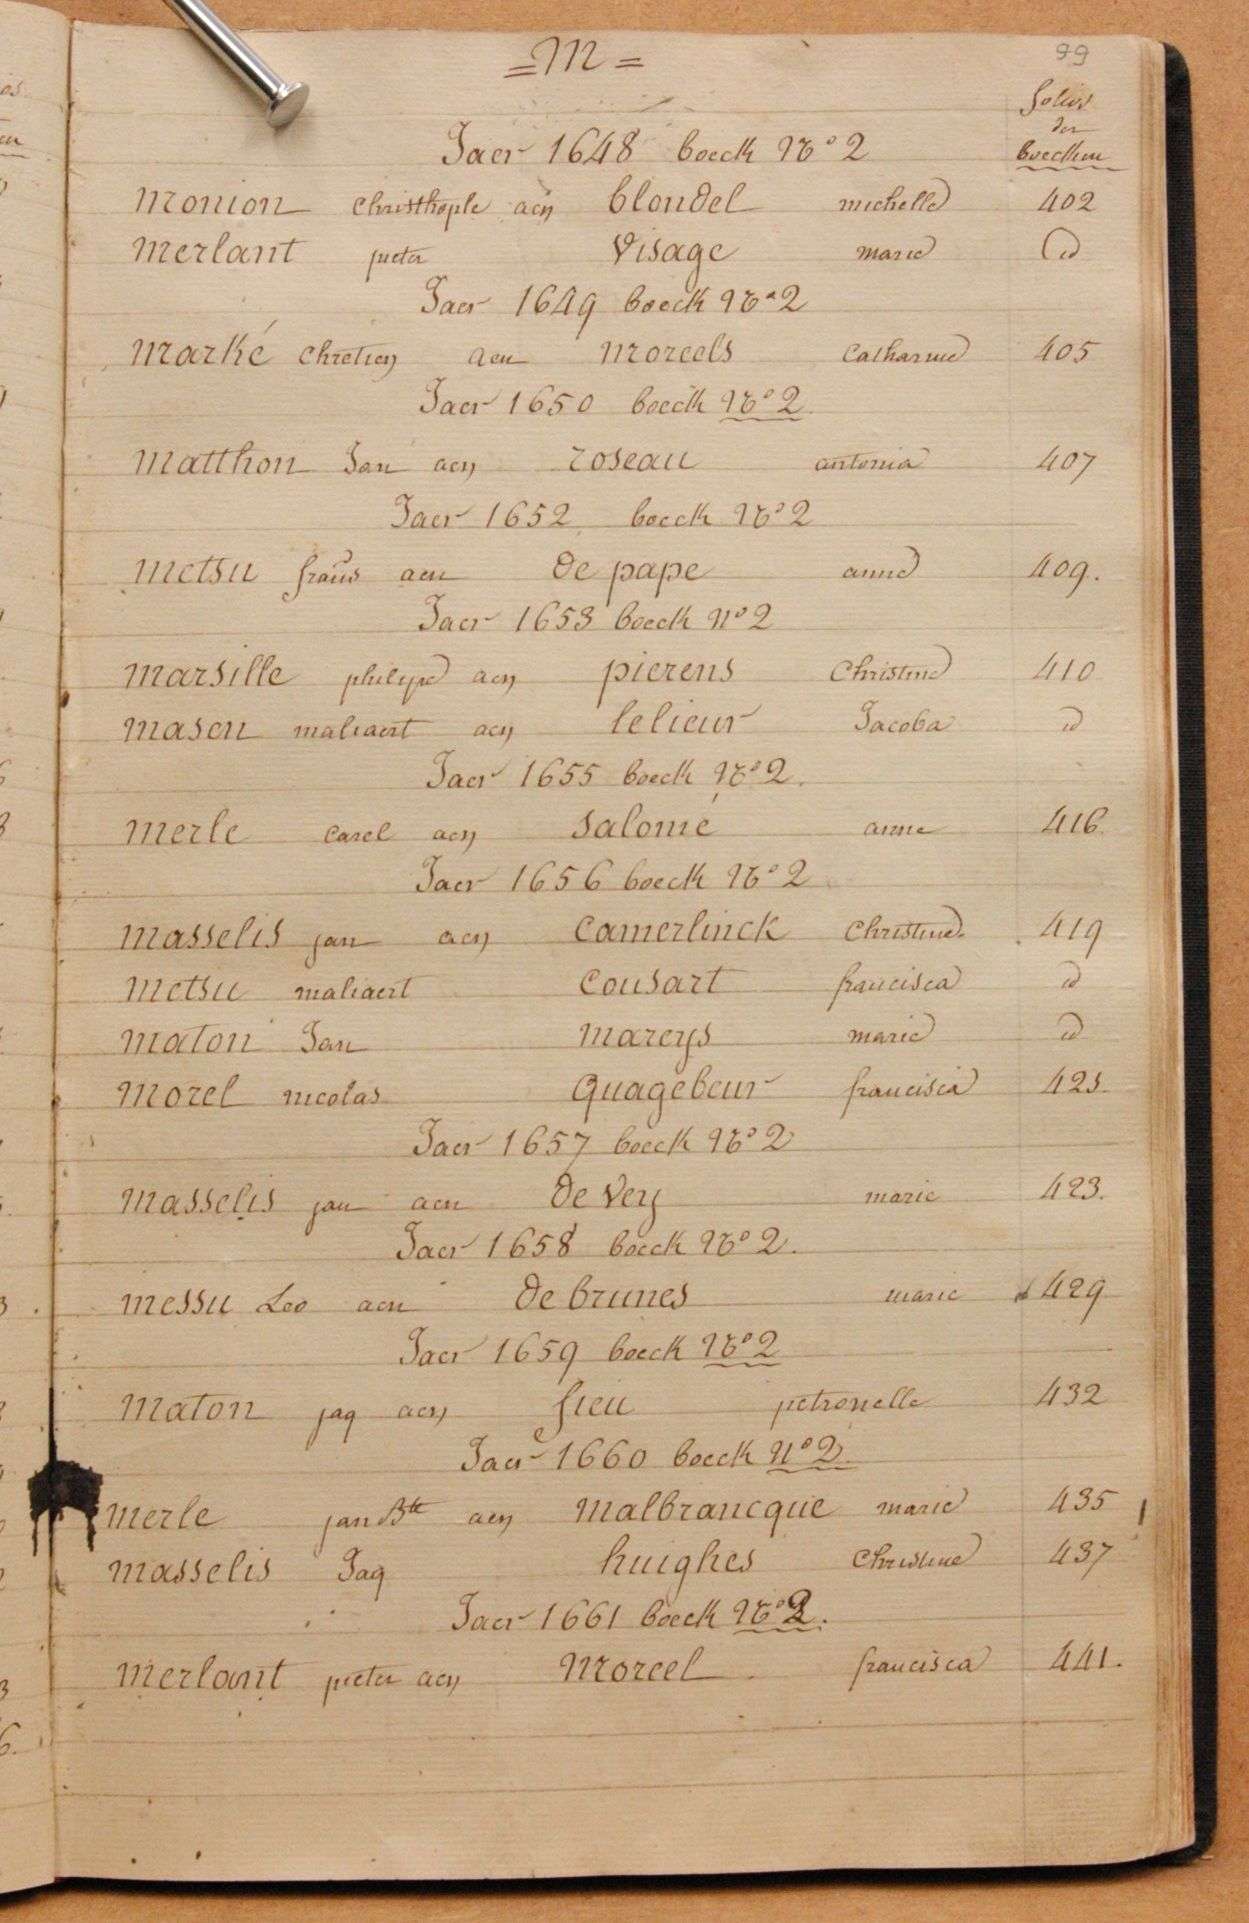 = M =
99
folios
der
boecken
Jaer 1648 boeck No 2
Monion christhople aen blondel michelle 402
Merlant pieter Visage marie id
Jaer 1649 boeck No 2
Marké chretien aen Morcels catharine 405
Jaer 1650 boeck No 2
Matthon Jan aen roseau antonia 407
Jaer 1652 boeck No 2
Metsu frans aen de pape anne 409.
Jaer 1653 boeck No 2
Marsille philipe aen pierens Christine 410
Masen maliaert aen lelieur Jacoba id
Jaer 1655 boeck No 2.
Merle carel aen Salomé anne 416
Jaer 1656 boeck No 2
Masselis jan aen Camerlinck Christine. 419
Metsu maliaert Cousart francisca id
Maton Jan Mareys marie id
Morel nicolas Quagebeur francisca 421.
Jaer 1657 boeck No 2
Masselis jan aen de Vey marie 423.
Jaer 1658 boeck No 2.
Messu Leo aen de brunes marie 429
Jaer 1659 boeck No 2
Maton jaq aen fieu petronelle 432
Jaer 1660 boeck No 2.
Merle jan Bte aen Malbrancque marie 435
Masselis Jaq huighes Christine 437
Jaer 1661 boeck No 2.
Merlant pieter aen Morcel francisca 441.